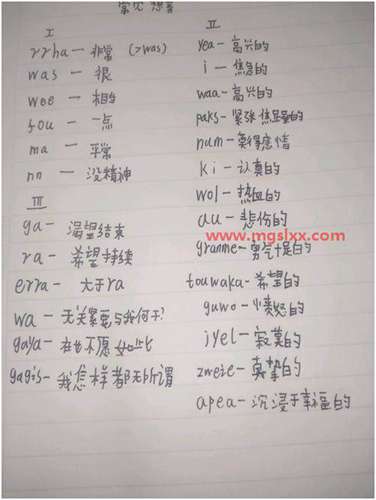 常见想音
I
rrha — 非常 (>was)
was — 很
wee — 相当
fou — 一点
ma — 平常
nn — 没精神
III
ga — 渴望结束
ra — 希望持续
erra — 大于ra
wa — 无关紧要与我何干?
gaya — 在也不愿如此
gagis — 我怎样都无所谓
II
yea — 高兴的
i — 焦急的
waa — 高兴的
paks — 紧张 焦虑的
num — 莫得感情
ki — 认真的
wol — 热血的
au — 悲伤的
www.mgslxx.com
granme — 勇气十足的
touwaka — 希望的
guwo — 愤怒的
jyel — 寂寞的
zweie — 真挚的
apea — 沉浸于幸福的